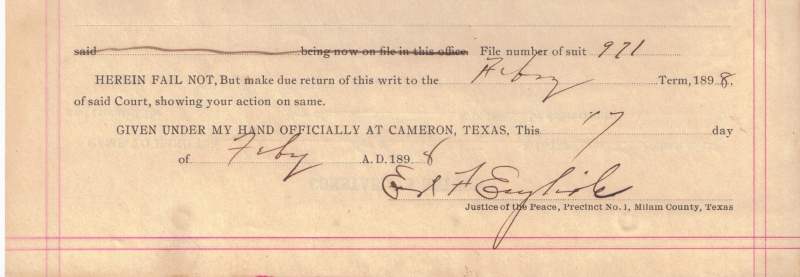 said being now on file in this office. File number of suit 971
HEREIN FAIL NOT, But make due return of this writ to the Feby Term, 1898.
of said Court, showing your action on same.
GIVEN UNDER MY HAND OFFICIALLY AT CAMERON, TEXAS, This 17 day
of Feby A. D. 1898
F English
Justice of the Peace, Precinct No. 1, Milam County, Texas